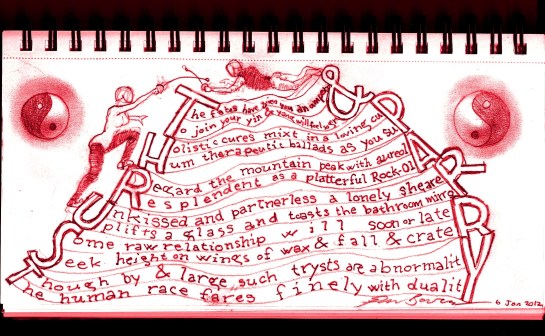 The fates have given you an
To join your yin & yang will feel
Holistic cures mixt in a loving cuP
Hum therapeutic ballads as you suP
Regard the mountain peak with aureolA
Resplendent as a platterful Rock-OlA
Unkissed and partnerless a lonely sheareR
Uplifts a glass and toasts the bathroom mirroR
Some raw relationship will soon or lateR
Seek height on wings of wax & fall & crateR
Though by & large such trysts are abnormalitY
The human race fares finely with dualitY
6 Jan 2012